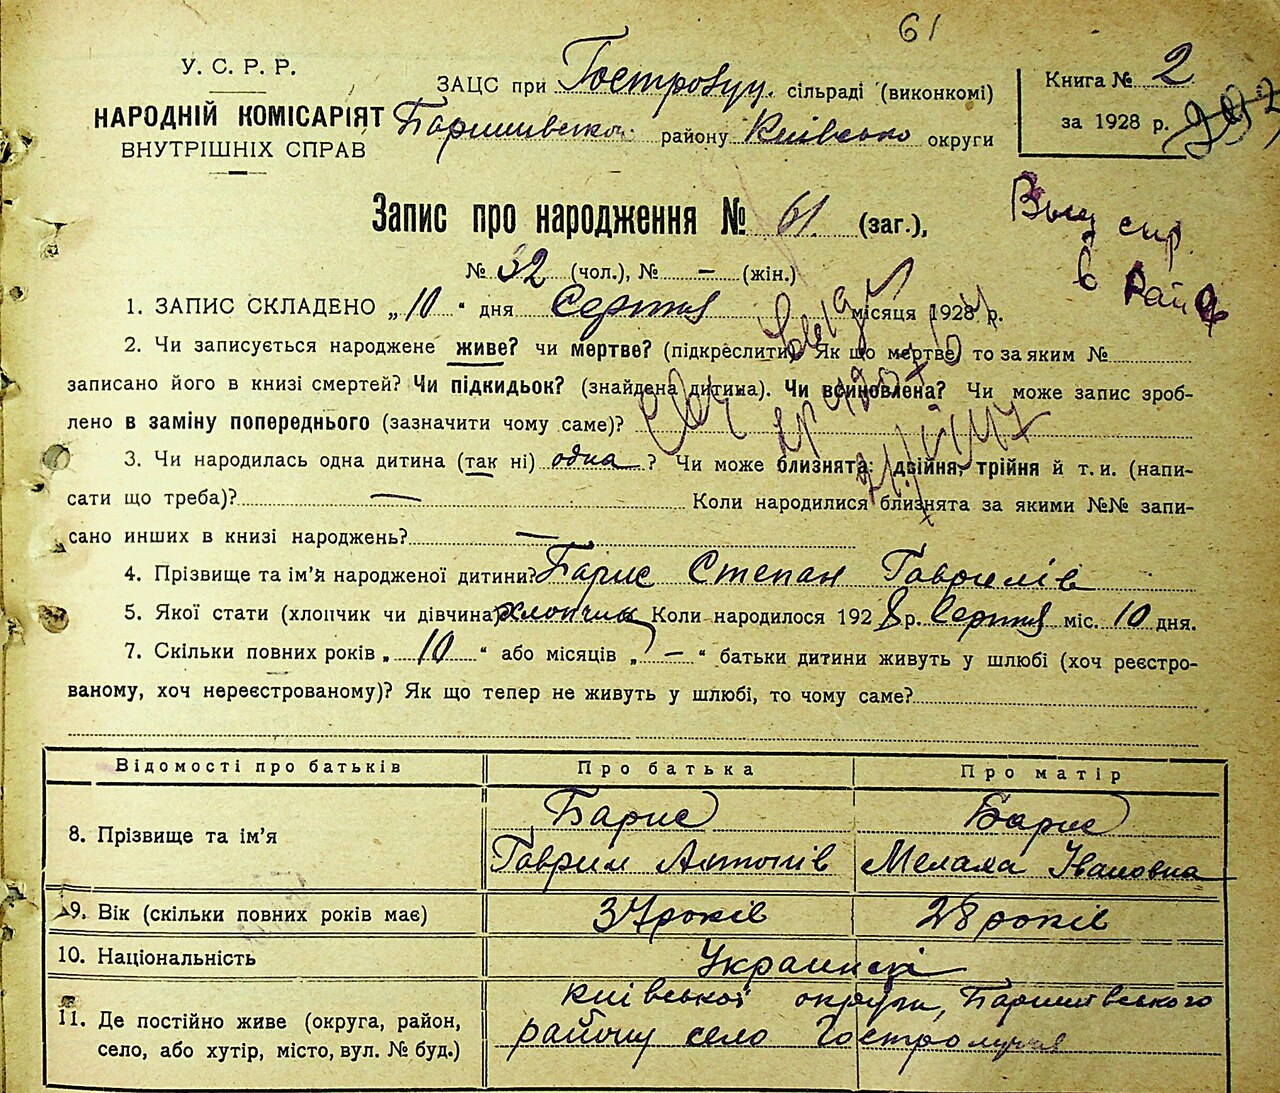 61
У. С. Р. Р.
НАРОДНІЙ КОМІСАРІЯТ
ВНУТРІШНІХ СПРАВ
ЗАЦС при Гостролуц. сільраді (виконкомі)
Баришивсько району Київсько округи
Книга № 2
за 1928 р.
Запис про народження № 61 (заг.),
№ 32 (чол.), № — (жін.)
Выд спр.
в
1. ЗАПИС СКЛАДЕНО „10“ дня Серпня місяця 1928 р.
2. Чи записується народжене живе? чи мертве? (підкреслити) Як що мертве, то за яким №
записано його в книзі смертей? Чи підкидьок? (знайдена дитина). Чи всиновлена? Чи може запис зроб-
лено в заміну попереднього (зазначити чому саме)?
3. Чи народилась одна дитина (так ні) одна ? Чи може близнята: двійня, трійня й т. и. (напи-
сати що треба)? — Коли народилися близнята за якими №№ запи-
сано инших в книзі народжень? —
4. Прізвище та ім'я народженої дитини? Барис Степан Гаврилів
5. Якої стати (хлопчик чи дівчина) хлопчик Коли народилося 1928 р. Серпня міс. 10 дня.
7. Скільки повних років „10“ або місяців „—“ батьки дитини живуть у шлюбі (хоч реєстро-
ваному, хоч нереєстрованому)? Як що тепер не живуть у шлюбі, то чому саме?
Відомості про батьків Про батька Про матір
8. Прізвище та ім'я
Барис
Гаврил Антонів
Барис
Мелаха Івановна
9. Вік (скільки повних років має) 37 років 28 років
10. Національність Украинсі
11. Де постійно живе (округа, район,
село, або хутір, місто, вул. № буд.)
київської округи, Баришівського
району село Гостролуччя